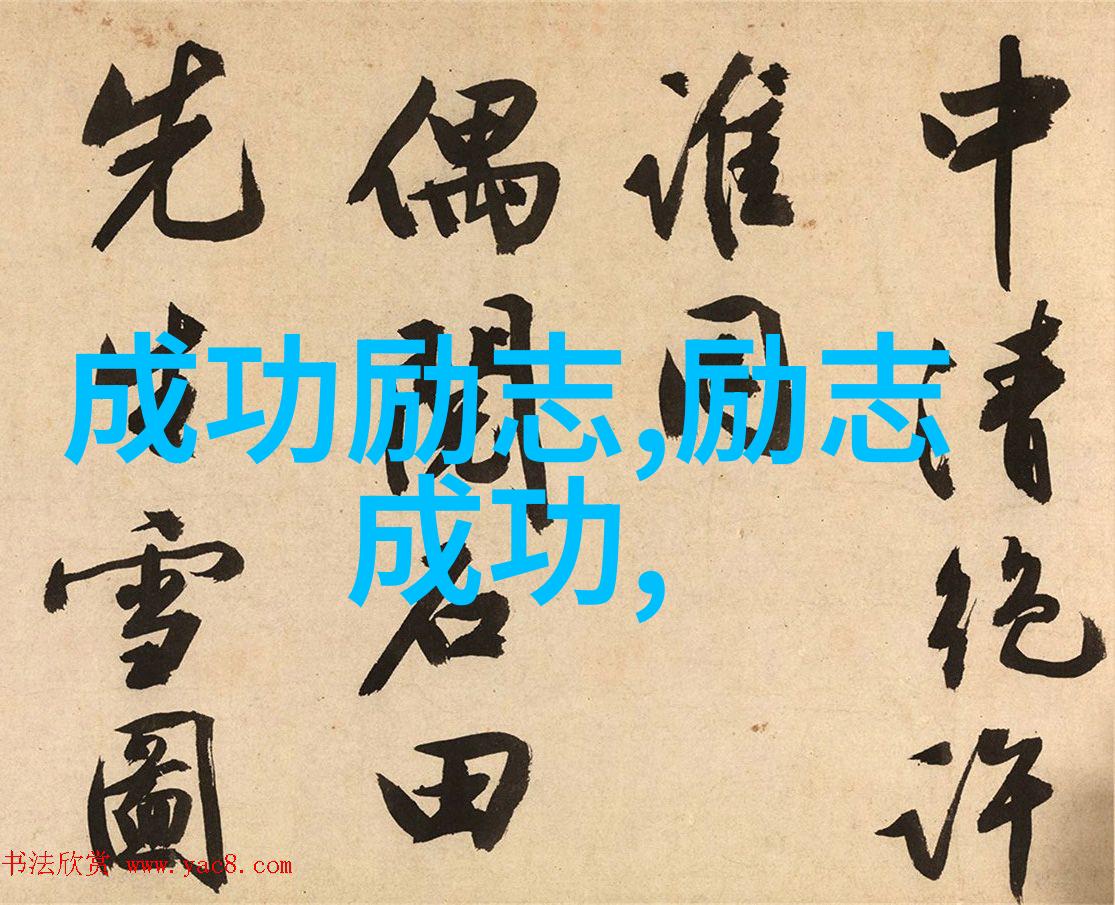 中清絶許
誰同
偶閱石田
先生雪圖
成功励志,励志
成功,
书法欣赏 www.yac8.com